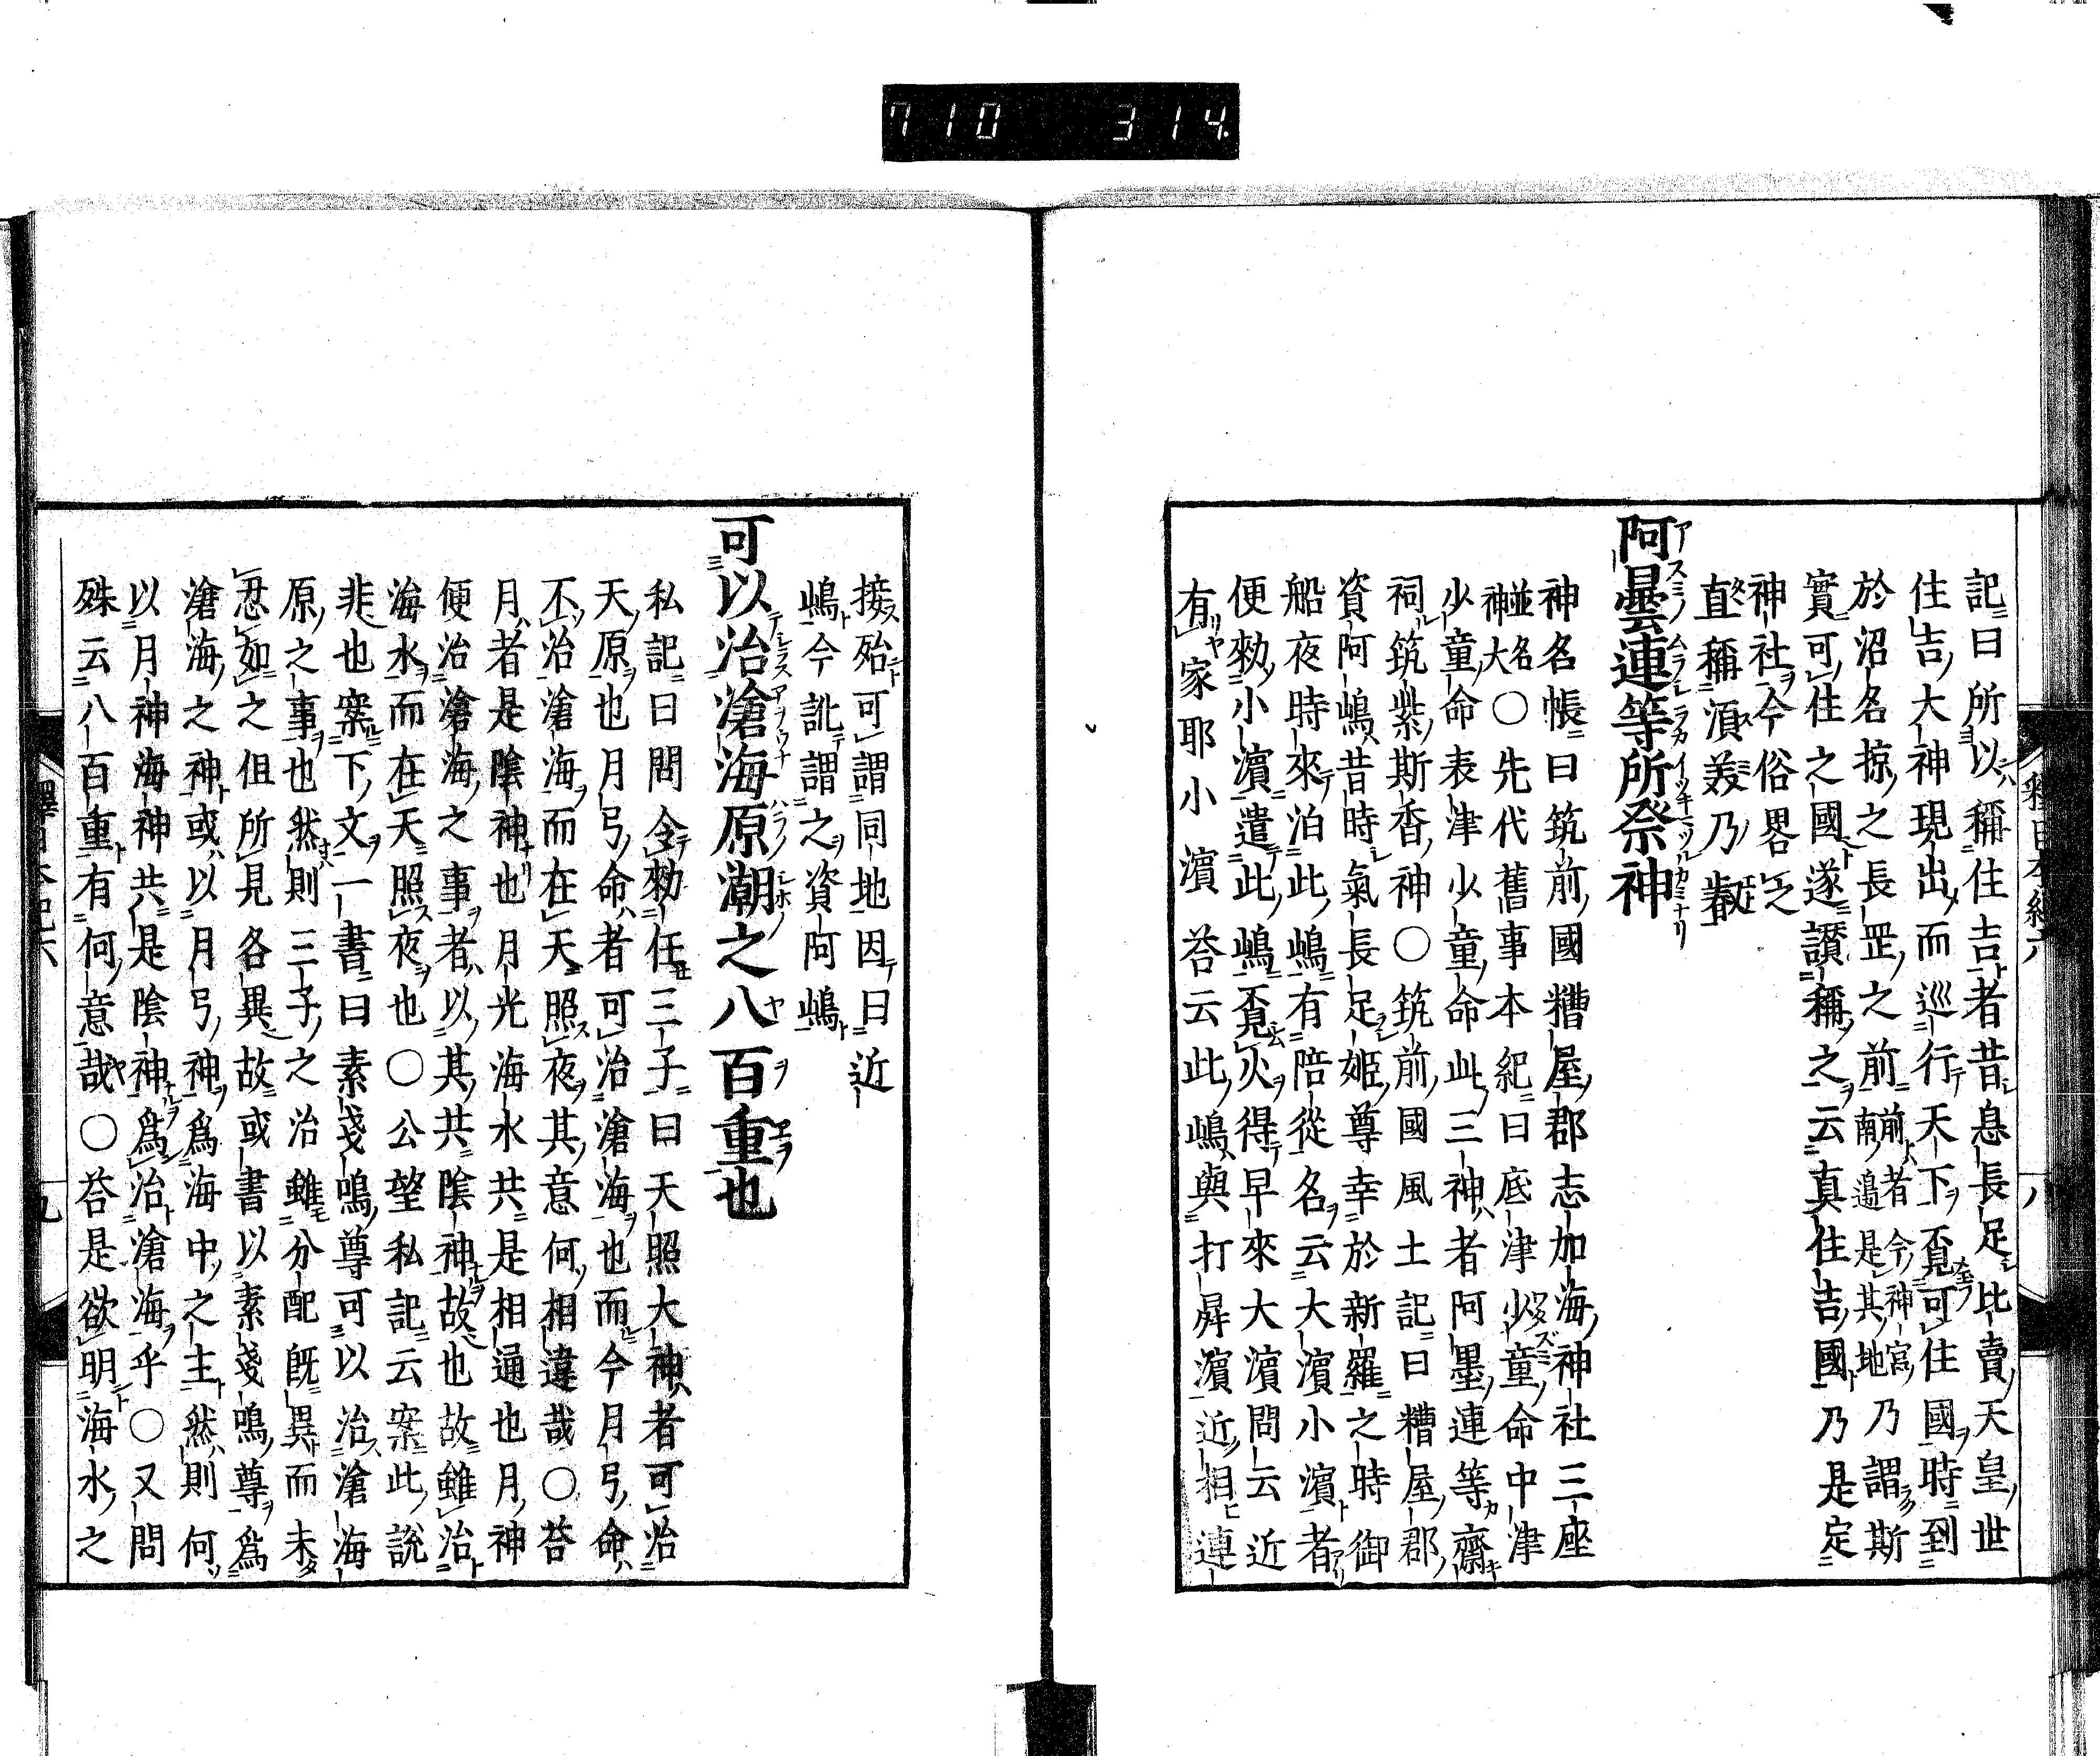 710 314
記曰所以稱住吉者昔息長足比賣天皇世
住吉大神現出而巡行天下覔可住國時到
於沼名掠之長𦊆之前前者今神宮南邊是其地乃謂斯
實可住之國遂讃稱之云真住吉國乃是定
神社今俗畧之
直稱湏美乃叡
阿曇連等所祭神
アスミノムラシラカイツキマツルカミナリ
神名帳曰筑前國糟屋郡志加海神社三座
並名神大〇先代舊事本紀曰底津少童命中津
少童命表津少童命此三神者阿墨連等齋
祠筑紫斯香神〇筑前國風土記曰糟屋郡
資阿嶋昔時氣長足姬尊幸於新羅之時御
船夜時來泊此嶋有陪從名云大濵小濵者
便勑小濵遣此嶋覔火得早來大濵問云近
有家耶小濵荅云此嶋與打昇濵近相連
接殆可謂同地因曰近
嶋今訛謂之資阿嶋
可以治滄海原潮之八百重也
私記曰問令勑任三子曰天照大神者可治
天原也月弓命者可治滄海也而今月弓命
不治滄海而在天照夜其意何相違哉〇荅
月者是陰神也月光海水共是相通也月神
便治滄海之事者以其共陰神故也故雖治
海水而在天照夜也〇公望私記云案此說
非也案下文一書曰素戔嗚尊可以治滄海
原之事也然則三子之治雖分配既異而未
忍如之但所見各異故或書以素戔嗚尊爲
滄海之神或以月弓神爲海中之主然則何
以月神海神共是陰神爲治滄海乎〇又問
殊云八百重有何意哉〇荅是欲明海水之